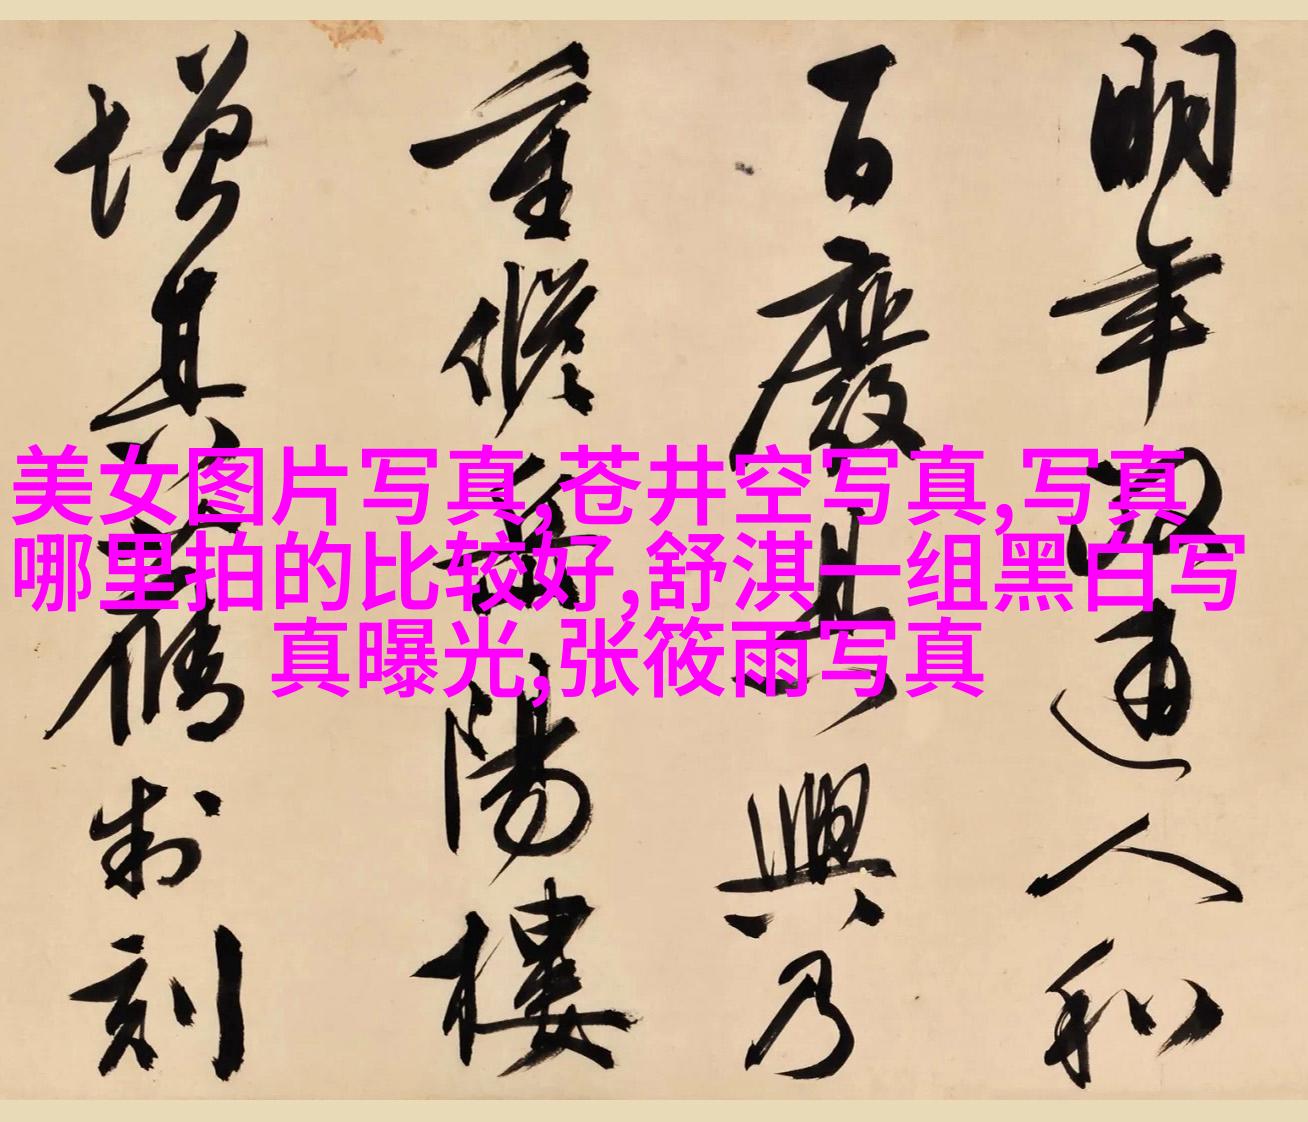 明年通人和
百廢具興乃
重修岳陽樓
增其舊制刻
美女图片写真,苍井空写真,写真
哪里拍的比较好,舒淇一组黑白写
真曝光,张筱雨写真